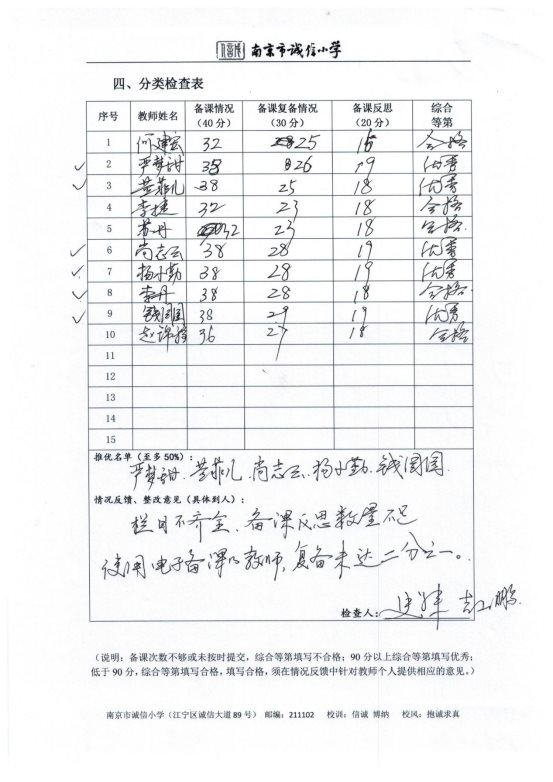 南京市诚信小学
四、分类检查表
序号 教师姓名 备课情况（40分） 备课复备情况（30分） 备课反思（20分） 综合等第
1 何建宏 32 25 16 合格
2 严梦甜 38 26 19 优秀
3 菲儿 38 25 18 优秀
4 李捷 32 23 18 合格
5 苏丹 32 23 18 合格.
6 尚志云 38 28 19 优秀
7 杨小勤 38 28 19 优秀
8 李丹 38 28 18 合格.
9 钱园园 38 29 19 优秀
10 赵 36 27 18 合格
11
12
13
14
15
推优名单（至多50%）：
严梦甜. 菲儿. 尚志云. 杨小勤. 钱园园.
情况反馈、整改意见（具体到人）：
栏目不齐全、备课反思数量不足
使用电子备课的教师，复备未达二分之一。
检查人：
（说明：备课次数不够或未按时提交，综合等第填写不合格；90分以上综合等第填写优秀；
低于90分，综合等第填写合格，填写合格，须在情况反馈中针对教师个人提供相应的意见。）
南京市诚信小学（江宁区诚信大道89号） 邮编：211102 校训：信诚 博纳 校风：抱诚求真